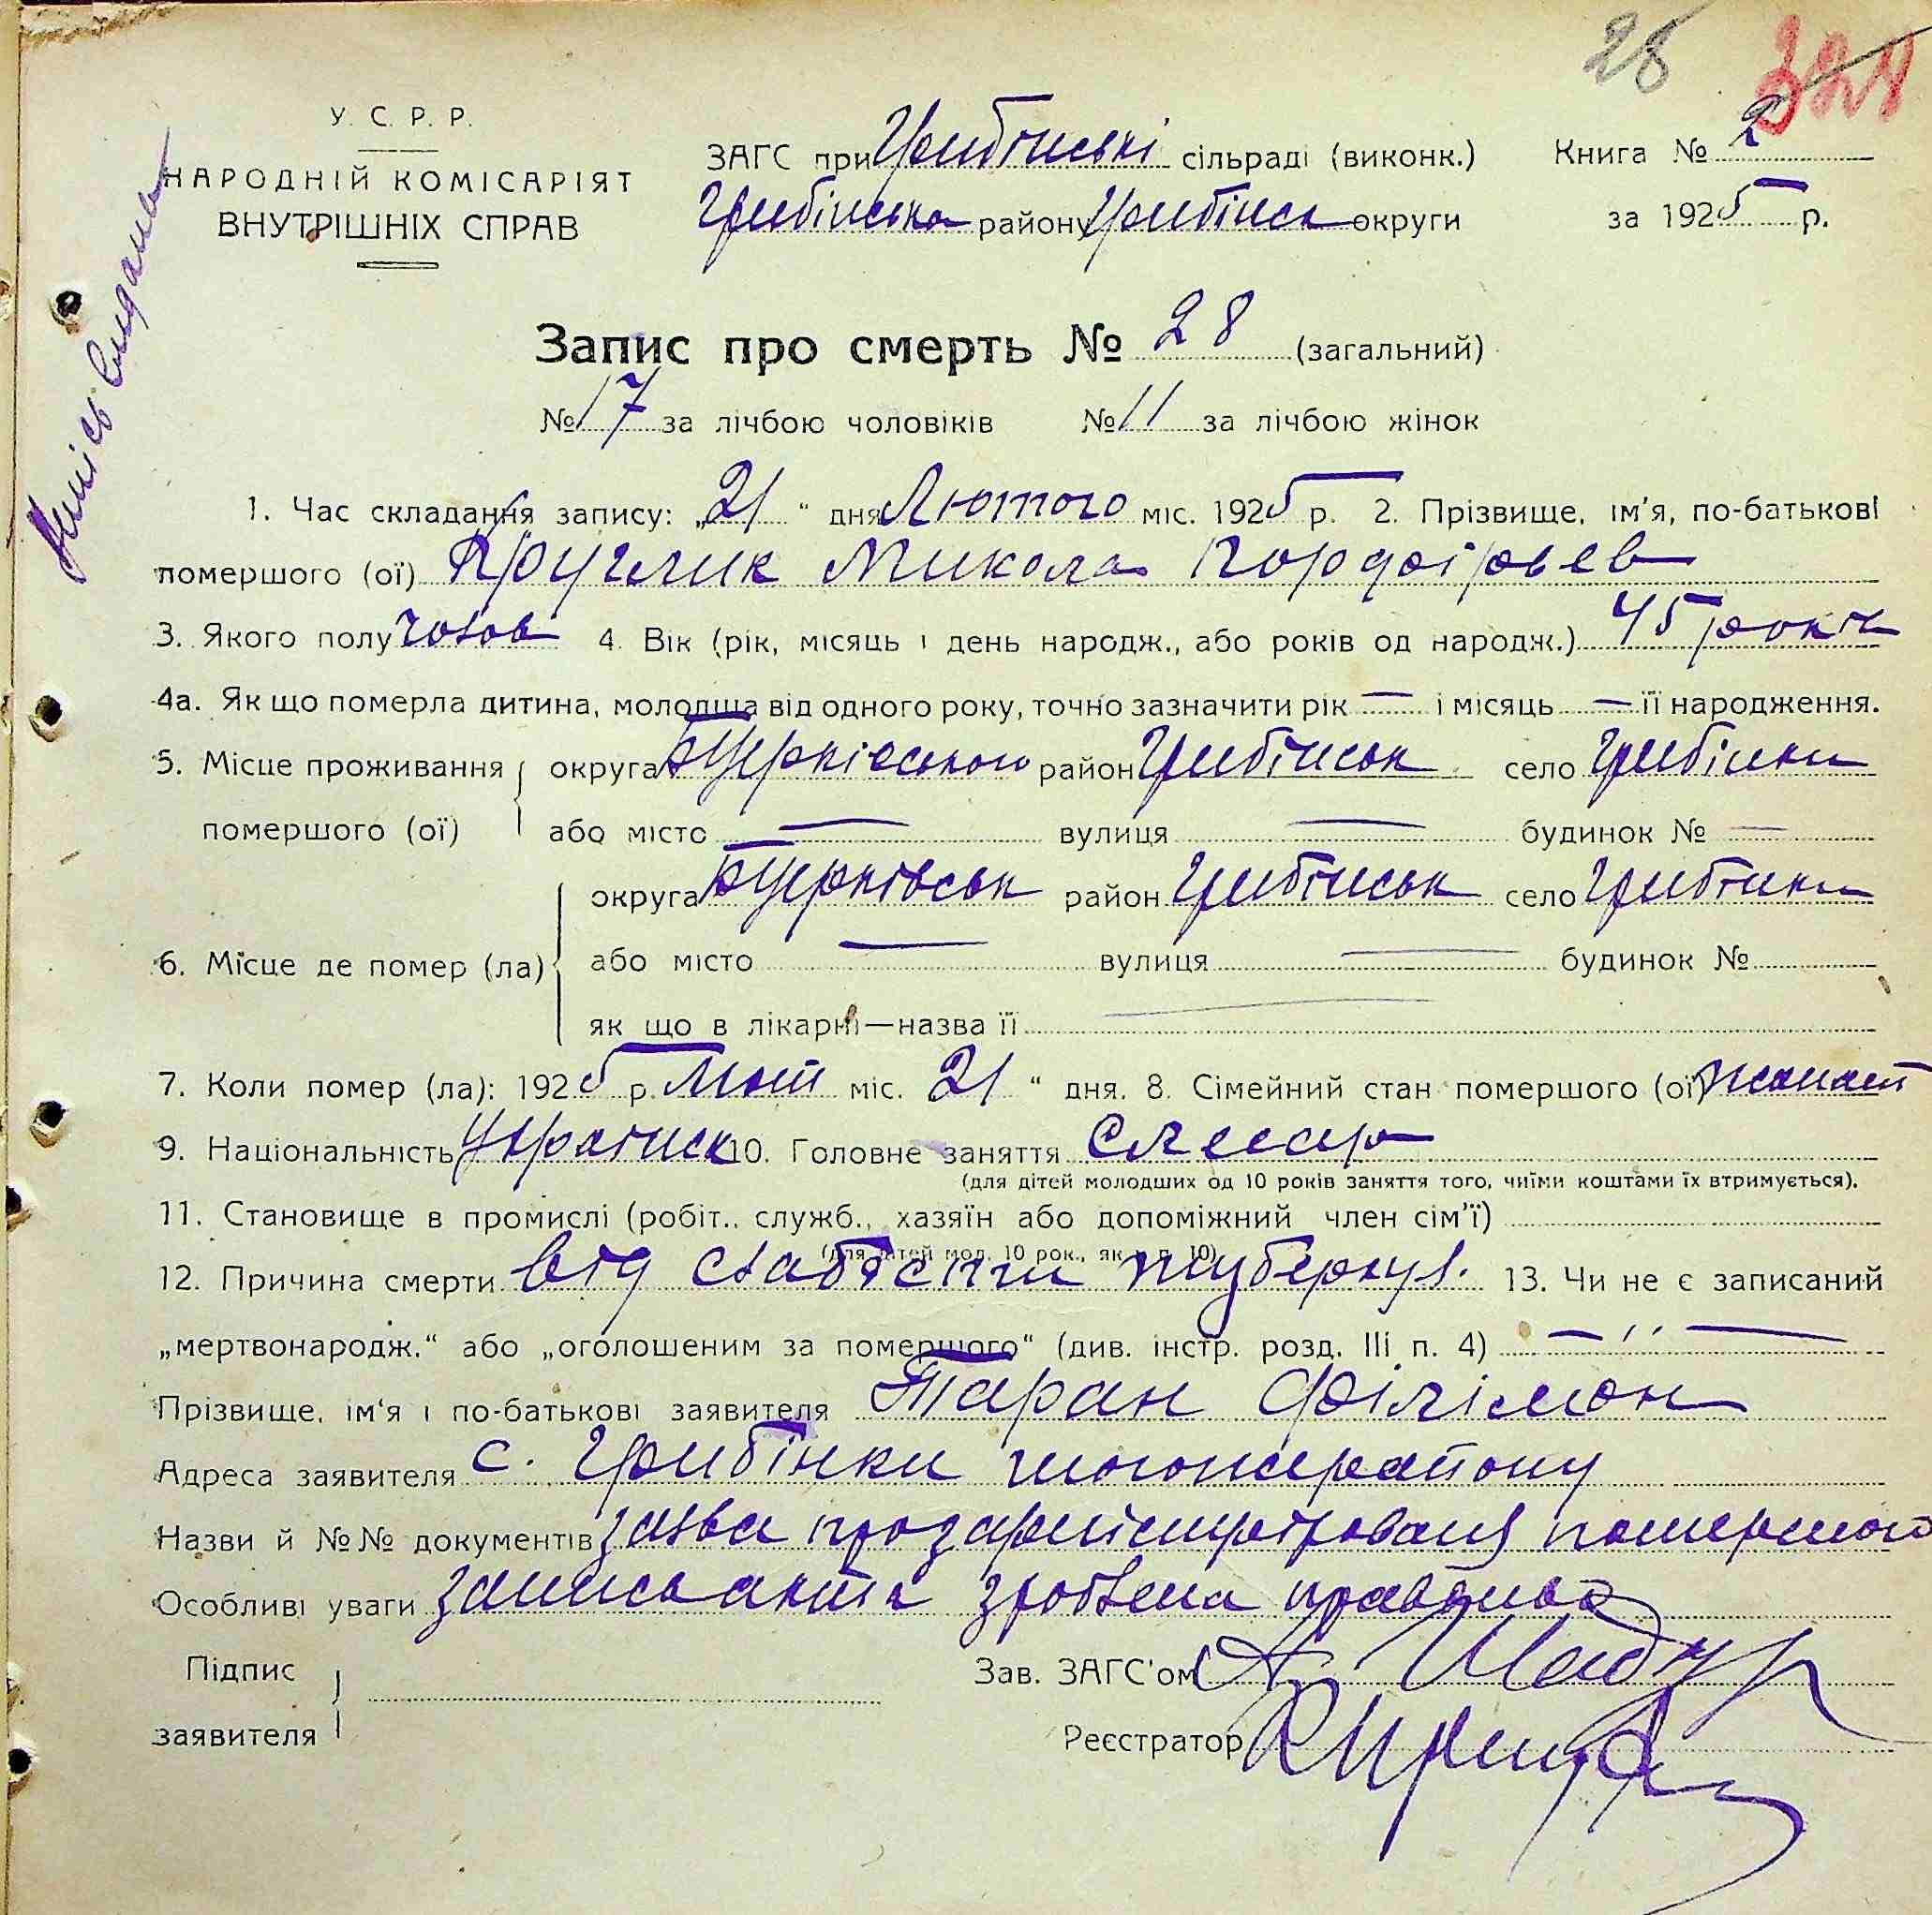 28 324
У. С. Р. Р.
НАРОДНІЙ КОМІСАРІЯТ
ВНУТРІШНІХ СПРАВ
ЗАГС при Грибінські сільраді (виконк.) Книга № 2
Грибінська району Грибінськ округи за 1925 р.
Запис про смерть № 28 (загальний)
№ 17 за лічбою чоловіків № 11 за лічбою жінок
1. Час складання запису: „21" дня Лютого міс. 1925 р. 2. Прізвище, ім'я, по-батькові
помершого (ої) Круглик Микола Гордоірьев
3. Якого полу чолов 4. Вік (рік, місяць і день народж., або років од народж.) 45 років
4а. Як що померла дитина, молодша від одного року, точно зазначити рік — і місяць — її народження.
5. Місце проживання округа БЦерківського район Грибінськ село Грибінки
помершого (ої) або місто — вулиця — будинок № —
округа БЦерківськ район Грибінськ село Грибінки
6. Місце де помер (ла) або місто — вулиця — будинок №
як що в лікарні—назва її —
7. Коли помер (ла): 1925 р. Лют міс. 21 " дня. 8. Сімейний стан помершого (ої) жонат
9. Національність Українск 10. Головне заняття Слесарь
(для дітей молодших од 10 років заняття того, чиїми коштами їх втримується).
11. Становище в промислі (робіт., служб., хазяїн або допоміжний член сім'ї)
(для дітей мол. 10 рок., як в п. 10)
12. Причина смерти від слабости туберкул. 13. Чи не є записаний
„мертвонародж." або „оголошеним за померщого" (див. інстр. розд. III п. 4) — ,, —
Прізвище, ім'я і по-батькові заявителя Таран Філімон
Адреса заявителя с. Грибінки
Назви й №№ документів заява про помершого
Особливі уваги запись зроблена правільно
Підпис Зав. ЗАГС'ом
заявителя Реєстратор